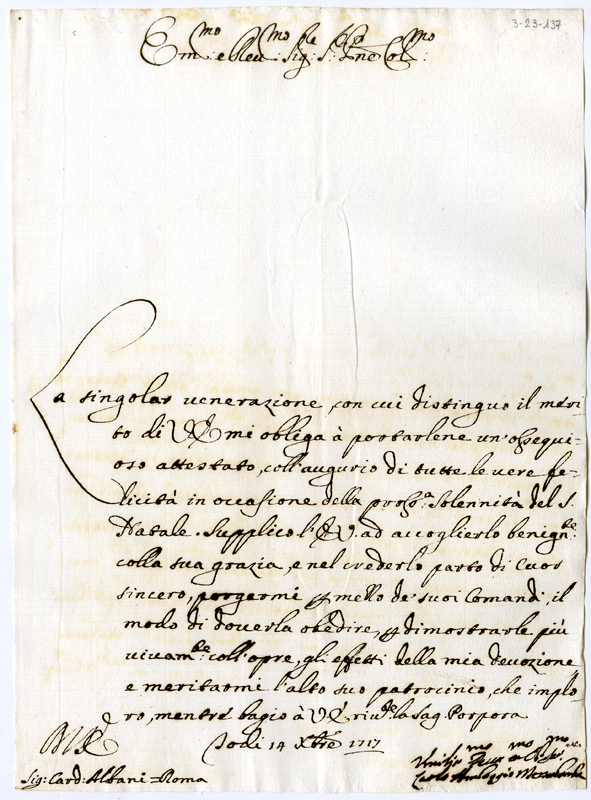 3-23-137
Em:mo e Reu:mo Sig:re S:r Pne Col:mo
La singolar uenerazione, con cui distinguo il meri-
to di V.E. mi obliga à portarlene un'ossequi-
oso attestato, coll'augurio di tutte le uere fe-
licità in occasione della pross:a Solennità del S.
Natale. Supplico l'E.V. ad accoglierlo benign:te
colla sua grazia, e nel crederlo parto di Cuor
sincero, porgermi p mezzo de' suoi Comandi, il
modo di douerla obedire, p dimostrarle più
uiuam:te coll'opre, gli effetti della mia deuozione
e meritarmi l'alto suo patrocinio, che implo-
ro, mentre bagio à V.E. riu:te la Sag. Porpora
Lodi 14 Xbre 1717
Sig: Card: Albani = Roma
Carlo Ambroggio